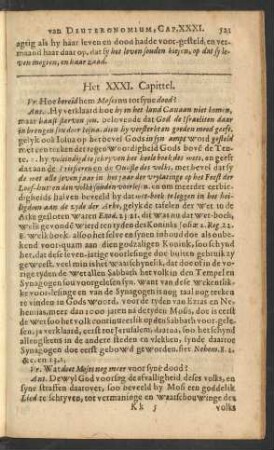 van DEUTERONOMIUM, CAP. XXXI. 521
agtig als hy haar leven en dood hadde voor-gesteld, en ver-
maand haar daar op, dat sy het leven souden kiesen, op dat sy le-
ven mogten, en haar zaad.
Het XXXI. Capittel.
Vr. Hoe bereid hem Moses nu tot syne dood?
Ant. Hy verklaard hoe hy in het land Canaan niet komen,
maar haast sterven sou, belovende dat God de Israeliten daar
in brengen sou door Iosua, dien hy versterkt en goeden moed geeft,
gelyk ook Iosua op her bevel Gods in syn ampt word gesteld
met een teeken der tegenwoordigheid Gods bove de Tent-
te. hy voleindigde te schryven het heele boek des wets, en geeft
dat aan de Priesteren en de Oudste des volks, met bevel dat sy
de wet alle seven jaar in het jaar der vrylatinge op het Feest der
Loof-hutten den volke souden voorlesen. en om meerder eerbie-
digheids halven beveeld hy dat wet-boek te leggen in het hei-
ligdom aan de zyde der Arke, gelyk de tafelen der Wet in de
Arke geslooten waren Exod. 25. 21. dit was nu dat wet-boek,
welk gevonden wierd ten tyden des Koninks Iosias 2. Reg. 22.
8. welk boek also Iosias lesende en synen inhoud doe also onbe-
kend voor-quam aan dien godzaligen Konink, soo schynd
her, dat dese seven-jatige voorlesinge doe buiten gebruik ge-
weest, veel min is het waarschynelik, dat doe of in de vo-
rige tyden de wet alle Sabbath het volk in den Tempel en
Synagogen is voorgelesen.
voorlesingen van de Synagogen is nog taal nog teeken
te vinden in Gods woord. voor de tyden van Ezras en Ne-
hemias, meer dan 1000 jaren na de tyden Mosis, doe is eerst
de wet soo het volk continueerlik op den Sabbath voor-gele-
sen, ja verklaard, eerst tot Jerusalem, daar na, soo het schynd
allengskens in de andere steden en vlekken, synde daar toe
Synagogen doe eerst gebowd geworden. siet Nehem. 8. 1.
&c. en 13. 1.
Vr. Wat doet Moses nog meer voor syne dood?
Ant. Dewyl God voorsag de afvalligheid deses volks, en
syne straffen daarover, soo beveeld hy Mosi een goddelik
Lied te schryven, tot vermaninge en waarschouwinge des
Kk 5 volks